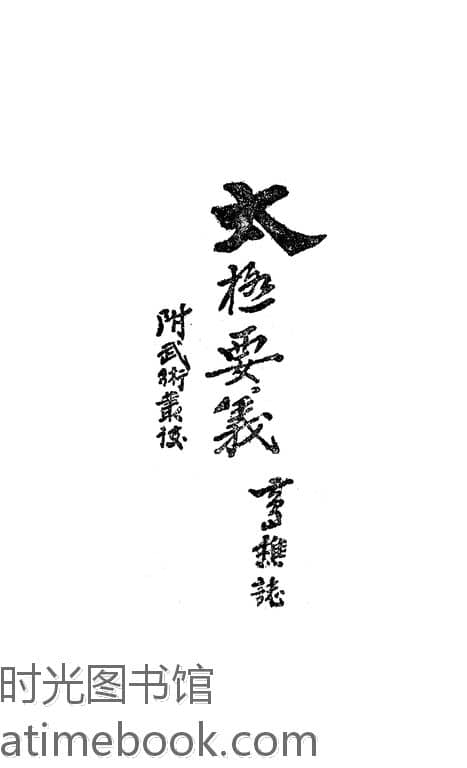 太極要義
附武術叢談
樵誌
时光图书馆
atimebook.com